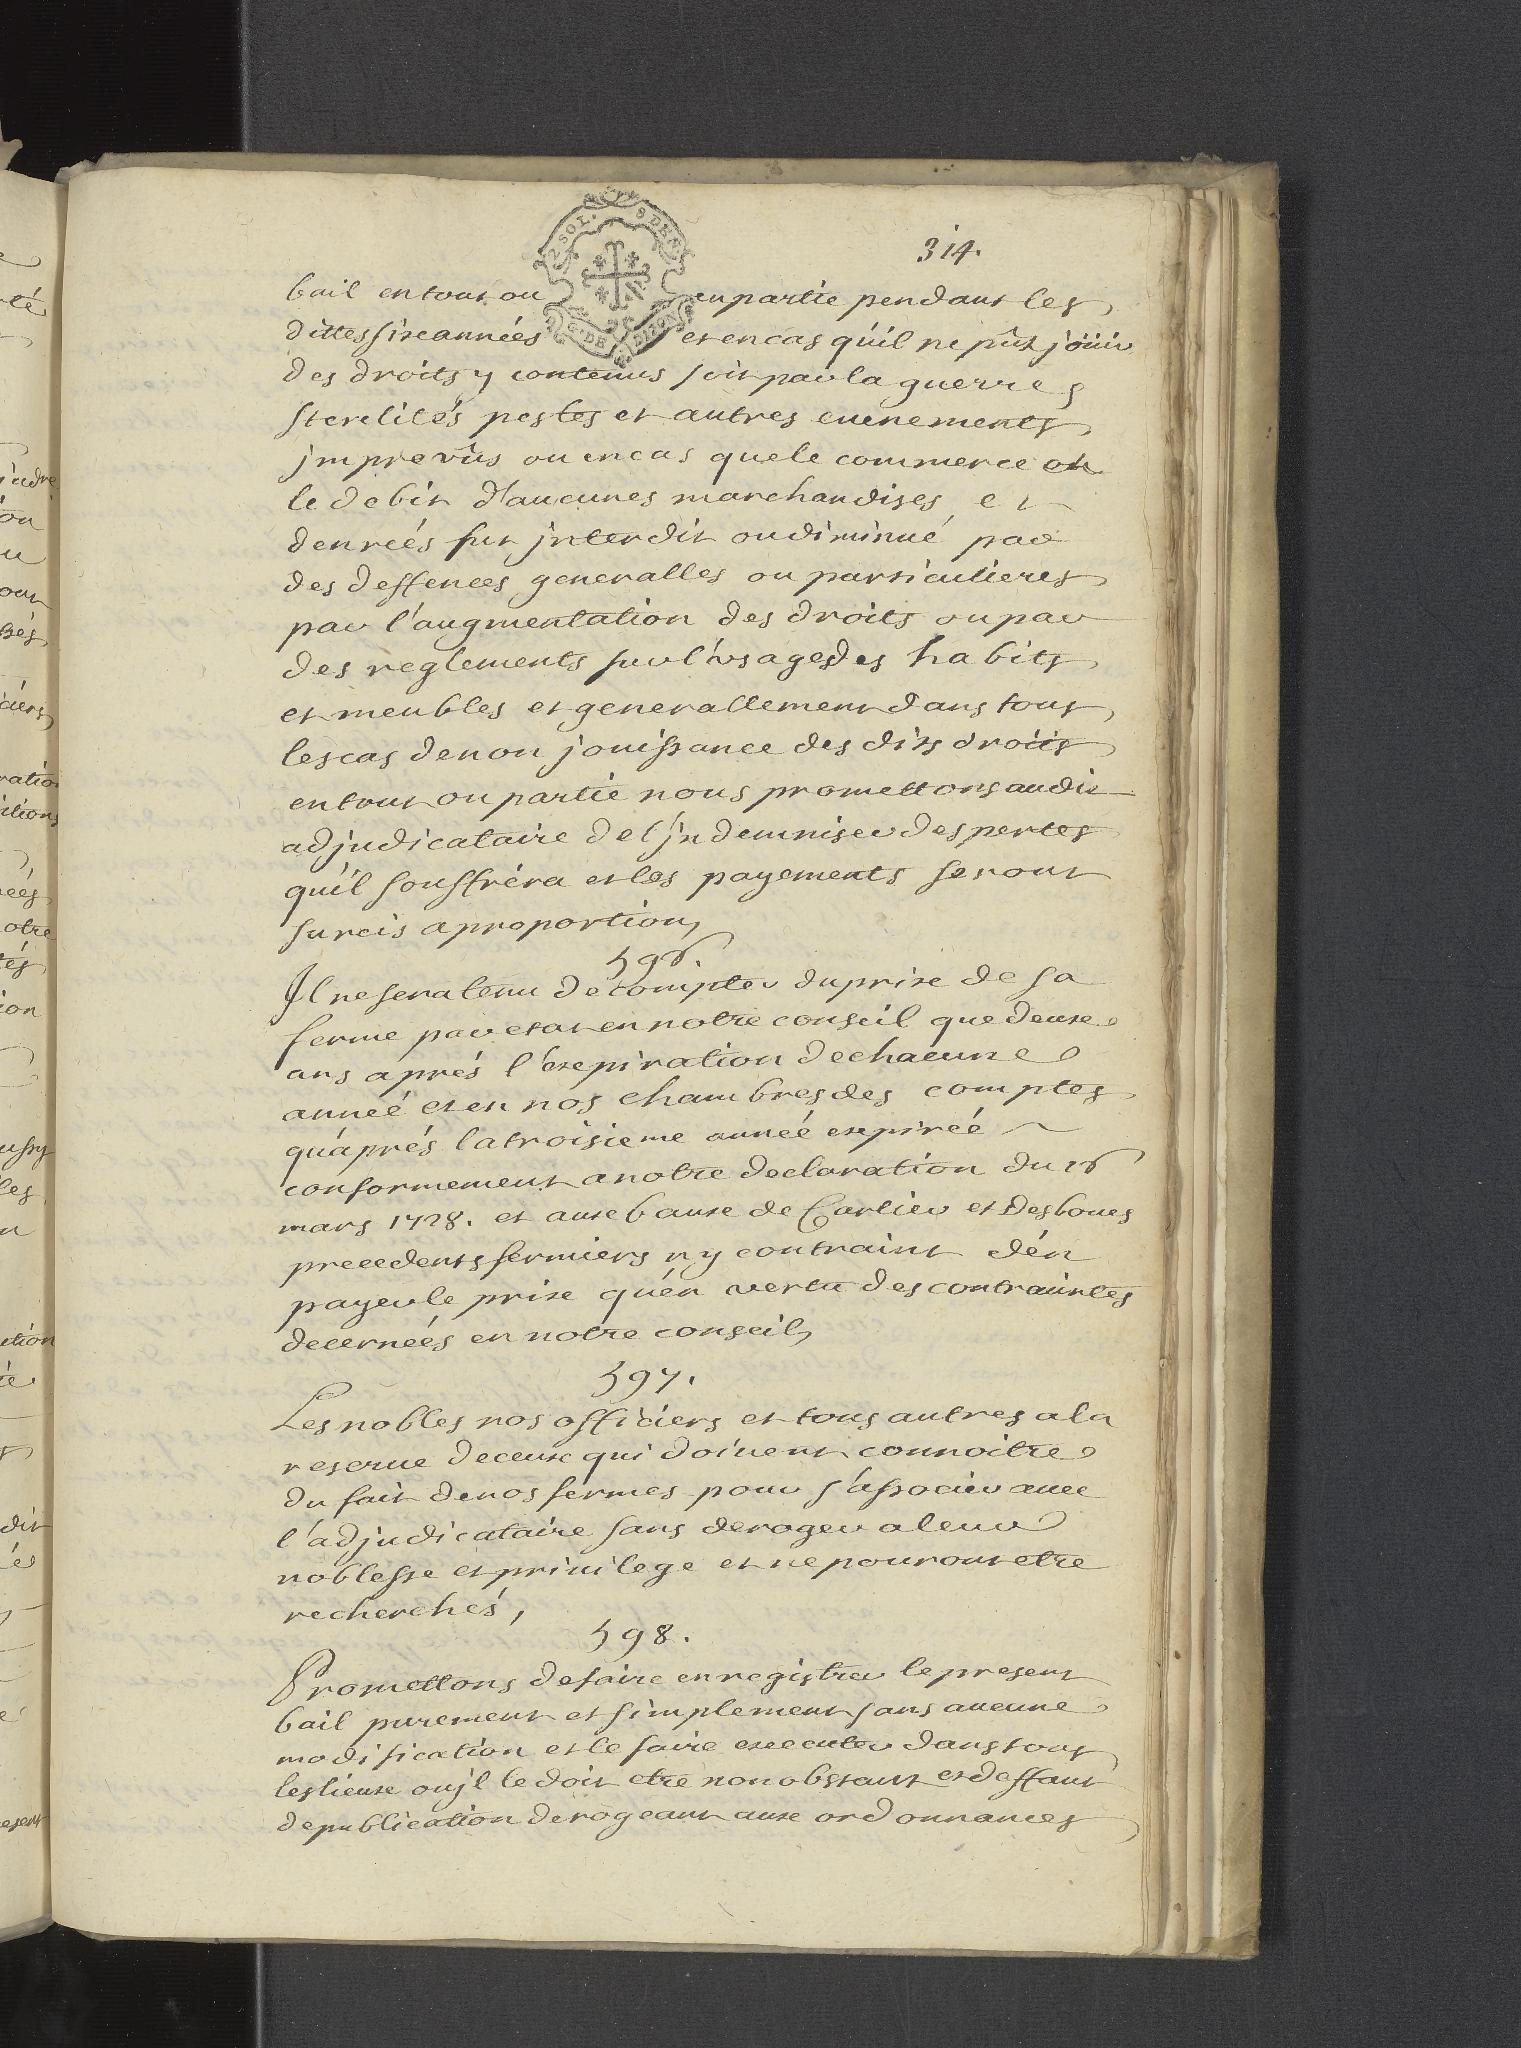 314.
2 SOL. 9 DEN
G. DE DIJON
bail en tout ou en partie pendant les
dittes six années et en cas qu'il ne pût joüir
des droits y contenus soit par la guerre
sterelités pestes et autres evenements
jmprevûs ou en cas que le commerce ou
le debit d'aucunes marchandises et
denreés fut jnterdit ou diminué par
des deffences generalles ou particulieres
par l'augmentation des droits ou par
des reglements sur l'usage des habits
et meubles et generallement dans tous
les cas de non jouissance des dits droits
en tout ou partie nous promettons audit
adjudicataire de l'jndemniser des pertes
qu'il souffréra et les payements seront
surcis a proportion,
596.
Il ne sera tenu de compter du prix de sa
ferme par etat en notre conseil que deux
ans aprés l'expiration de chacune
anneé et en nos chambres des comptes
qu'aprés la troisieme anneé expireé
conformement a notre declaration du 16
mars 1728. et aux baux de Carlier et Desboues
precedents fermiers ny contraint d'en
payer le prix qu'en vertu des contraintes
decerneés en notre conseil,
597.
Les nobles nos officiers et tous autres a la
reserue de ceux qui doiuent connoitre
du fait de nos fermes pour s'associer auec
l'adjudicataire sans deroger a leur
noblesse et priuilege et ne pouront etre
recherchés,
598.
Promettons de faire enregistrer le present
bail purement et simplement sans aucune
modification et le faire executer dans tous
les lieux ou jl le doit etre nonobstant et deffaut
de publication derogeant aux ordonnances